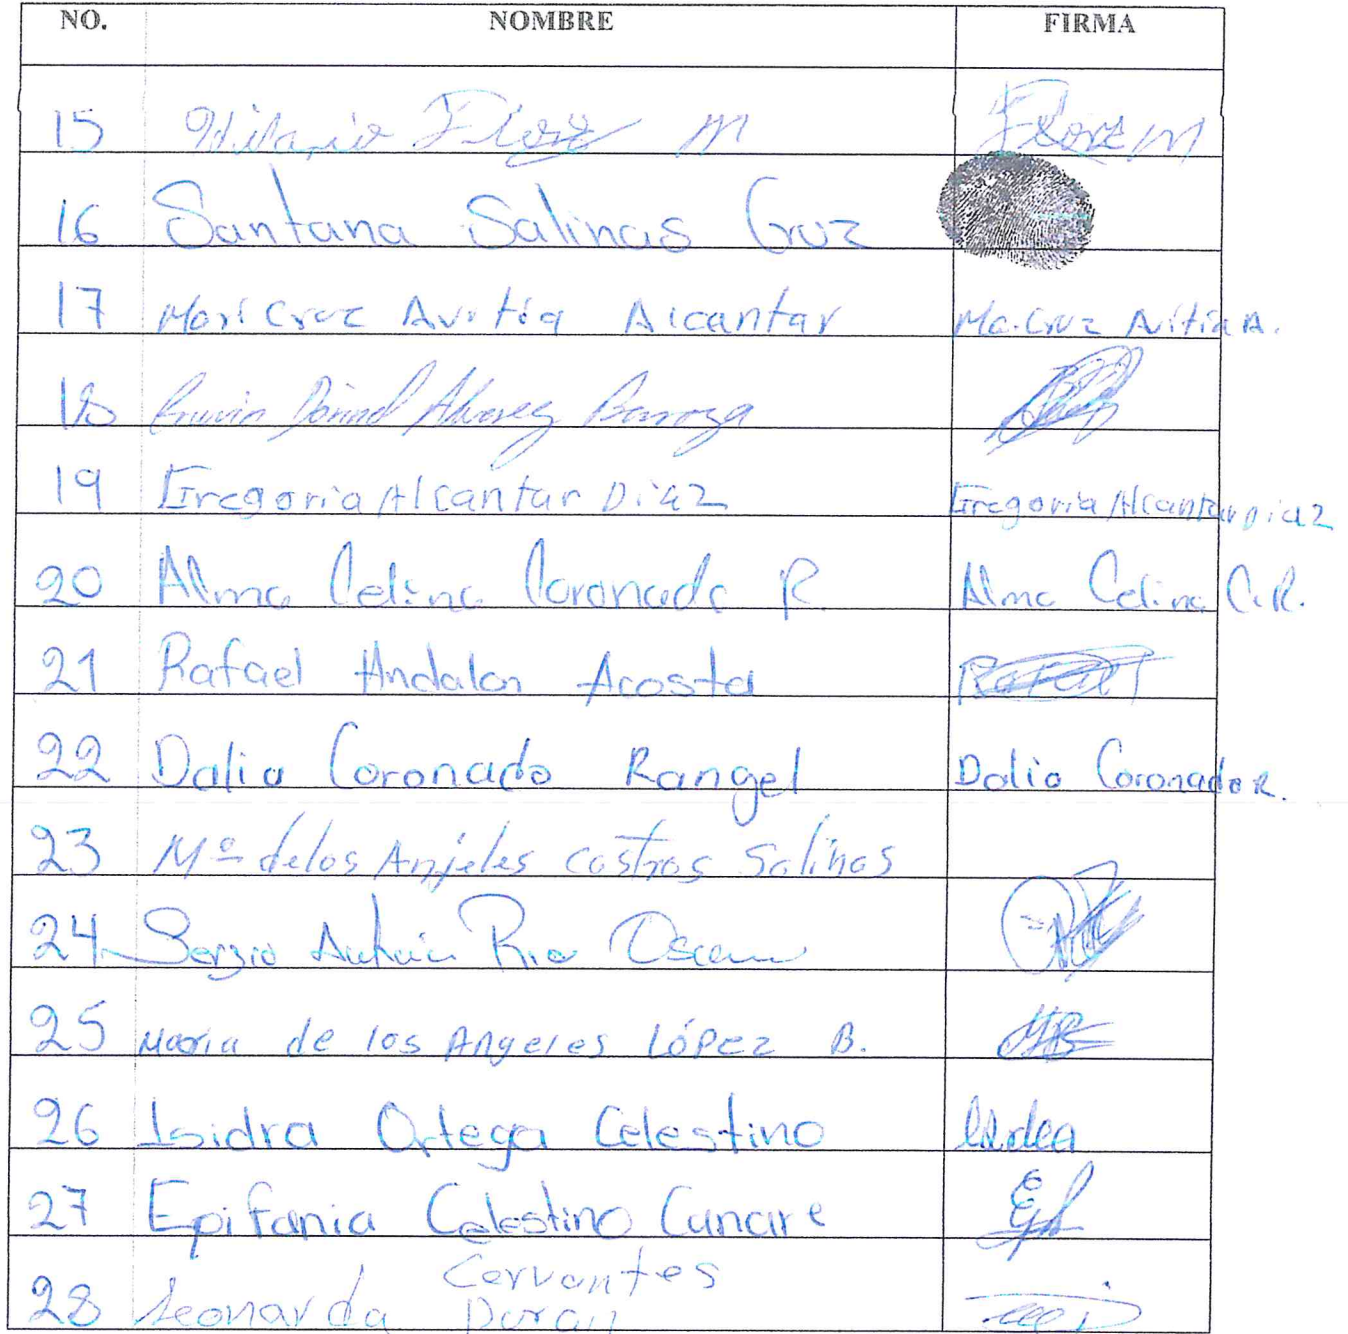 NO. NOMBRE FIRMA
15 Hilario Flores M Flores M
16 Santana Salinas Cruz
17 Mari Cruz Avitia Alcantar Ma. Cruz Avitia A.
18 Daniel Alvarez Barraza
19 Gregoria Alcantar Diaz Gregoria Alcantar Diaz
20 Alma Celina Coronado R. Alma Celina C.R.
21 Rafael Andalon Acosta Rafael
22 Dalia Coronado Rangel Dalia Coronado R.
23 Mª delos Anjeles Castros Salinas
24 Sergio Antonio
25 Maria de los Angeles López B.
26 Isidra Ortega Celestino
27 Epifania Celestino
Cervantes
28 Leonarda Duran